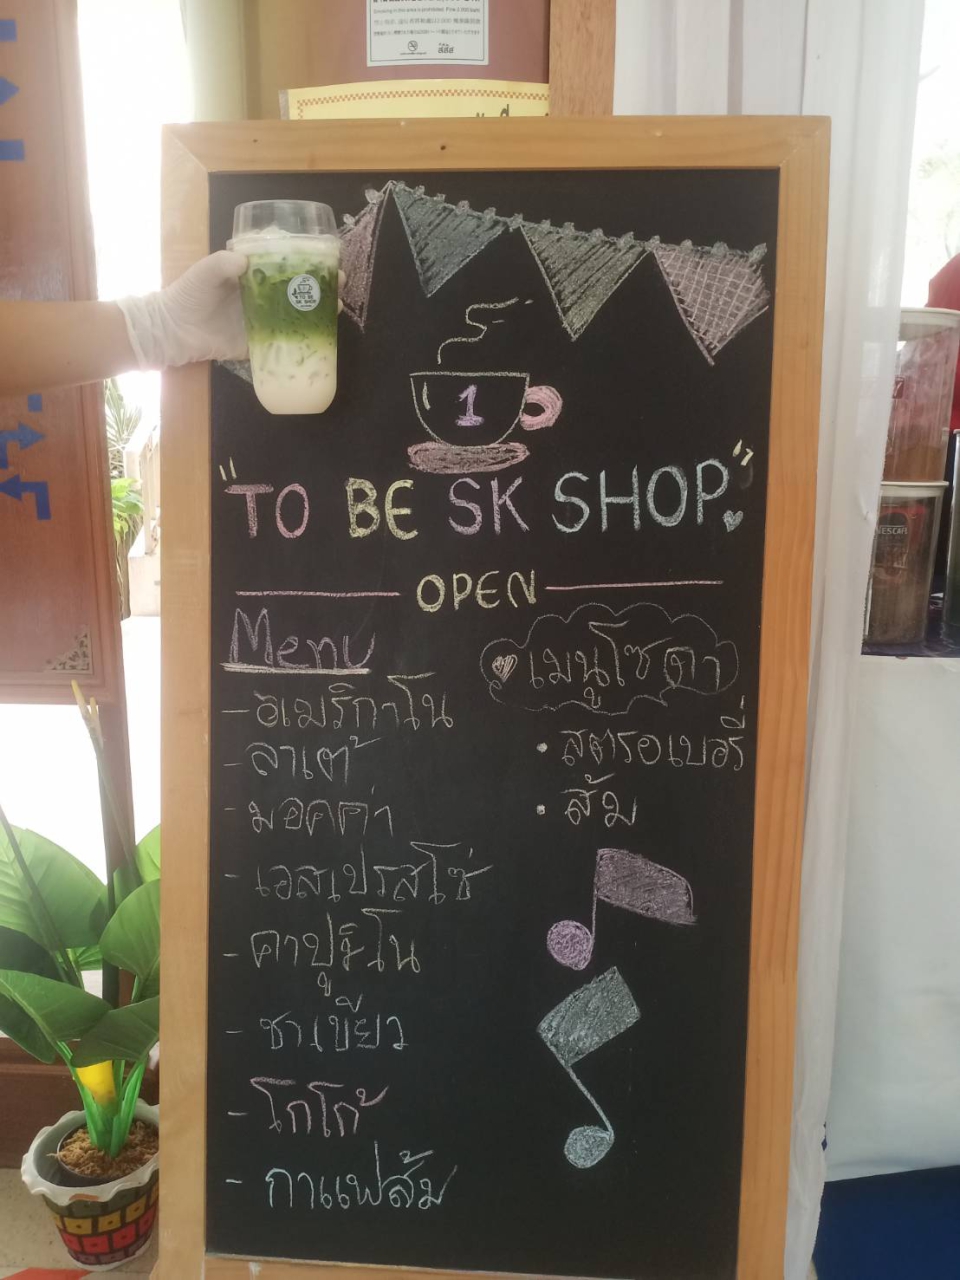 Smoking in this area is prohibited. Fine 2,000 baht
สสส
TO BE
SK SHOP
1
"TO BE SK SHOP"
OPEN
Menu
- อเมริกาโน
- ลาเต้
- มอคค่า
- เอสเปรสโซ่
- คาปูชิโน
- ชาเขียว
- โกโก้
- กาแฟส้ม
เมนูโซดา
• สตรอเบอรี่
• ส้ม
NESCAFÉ